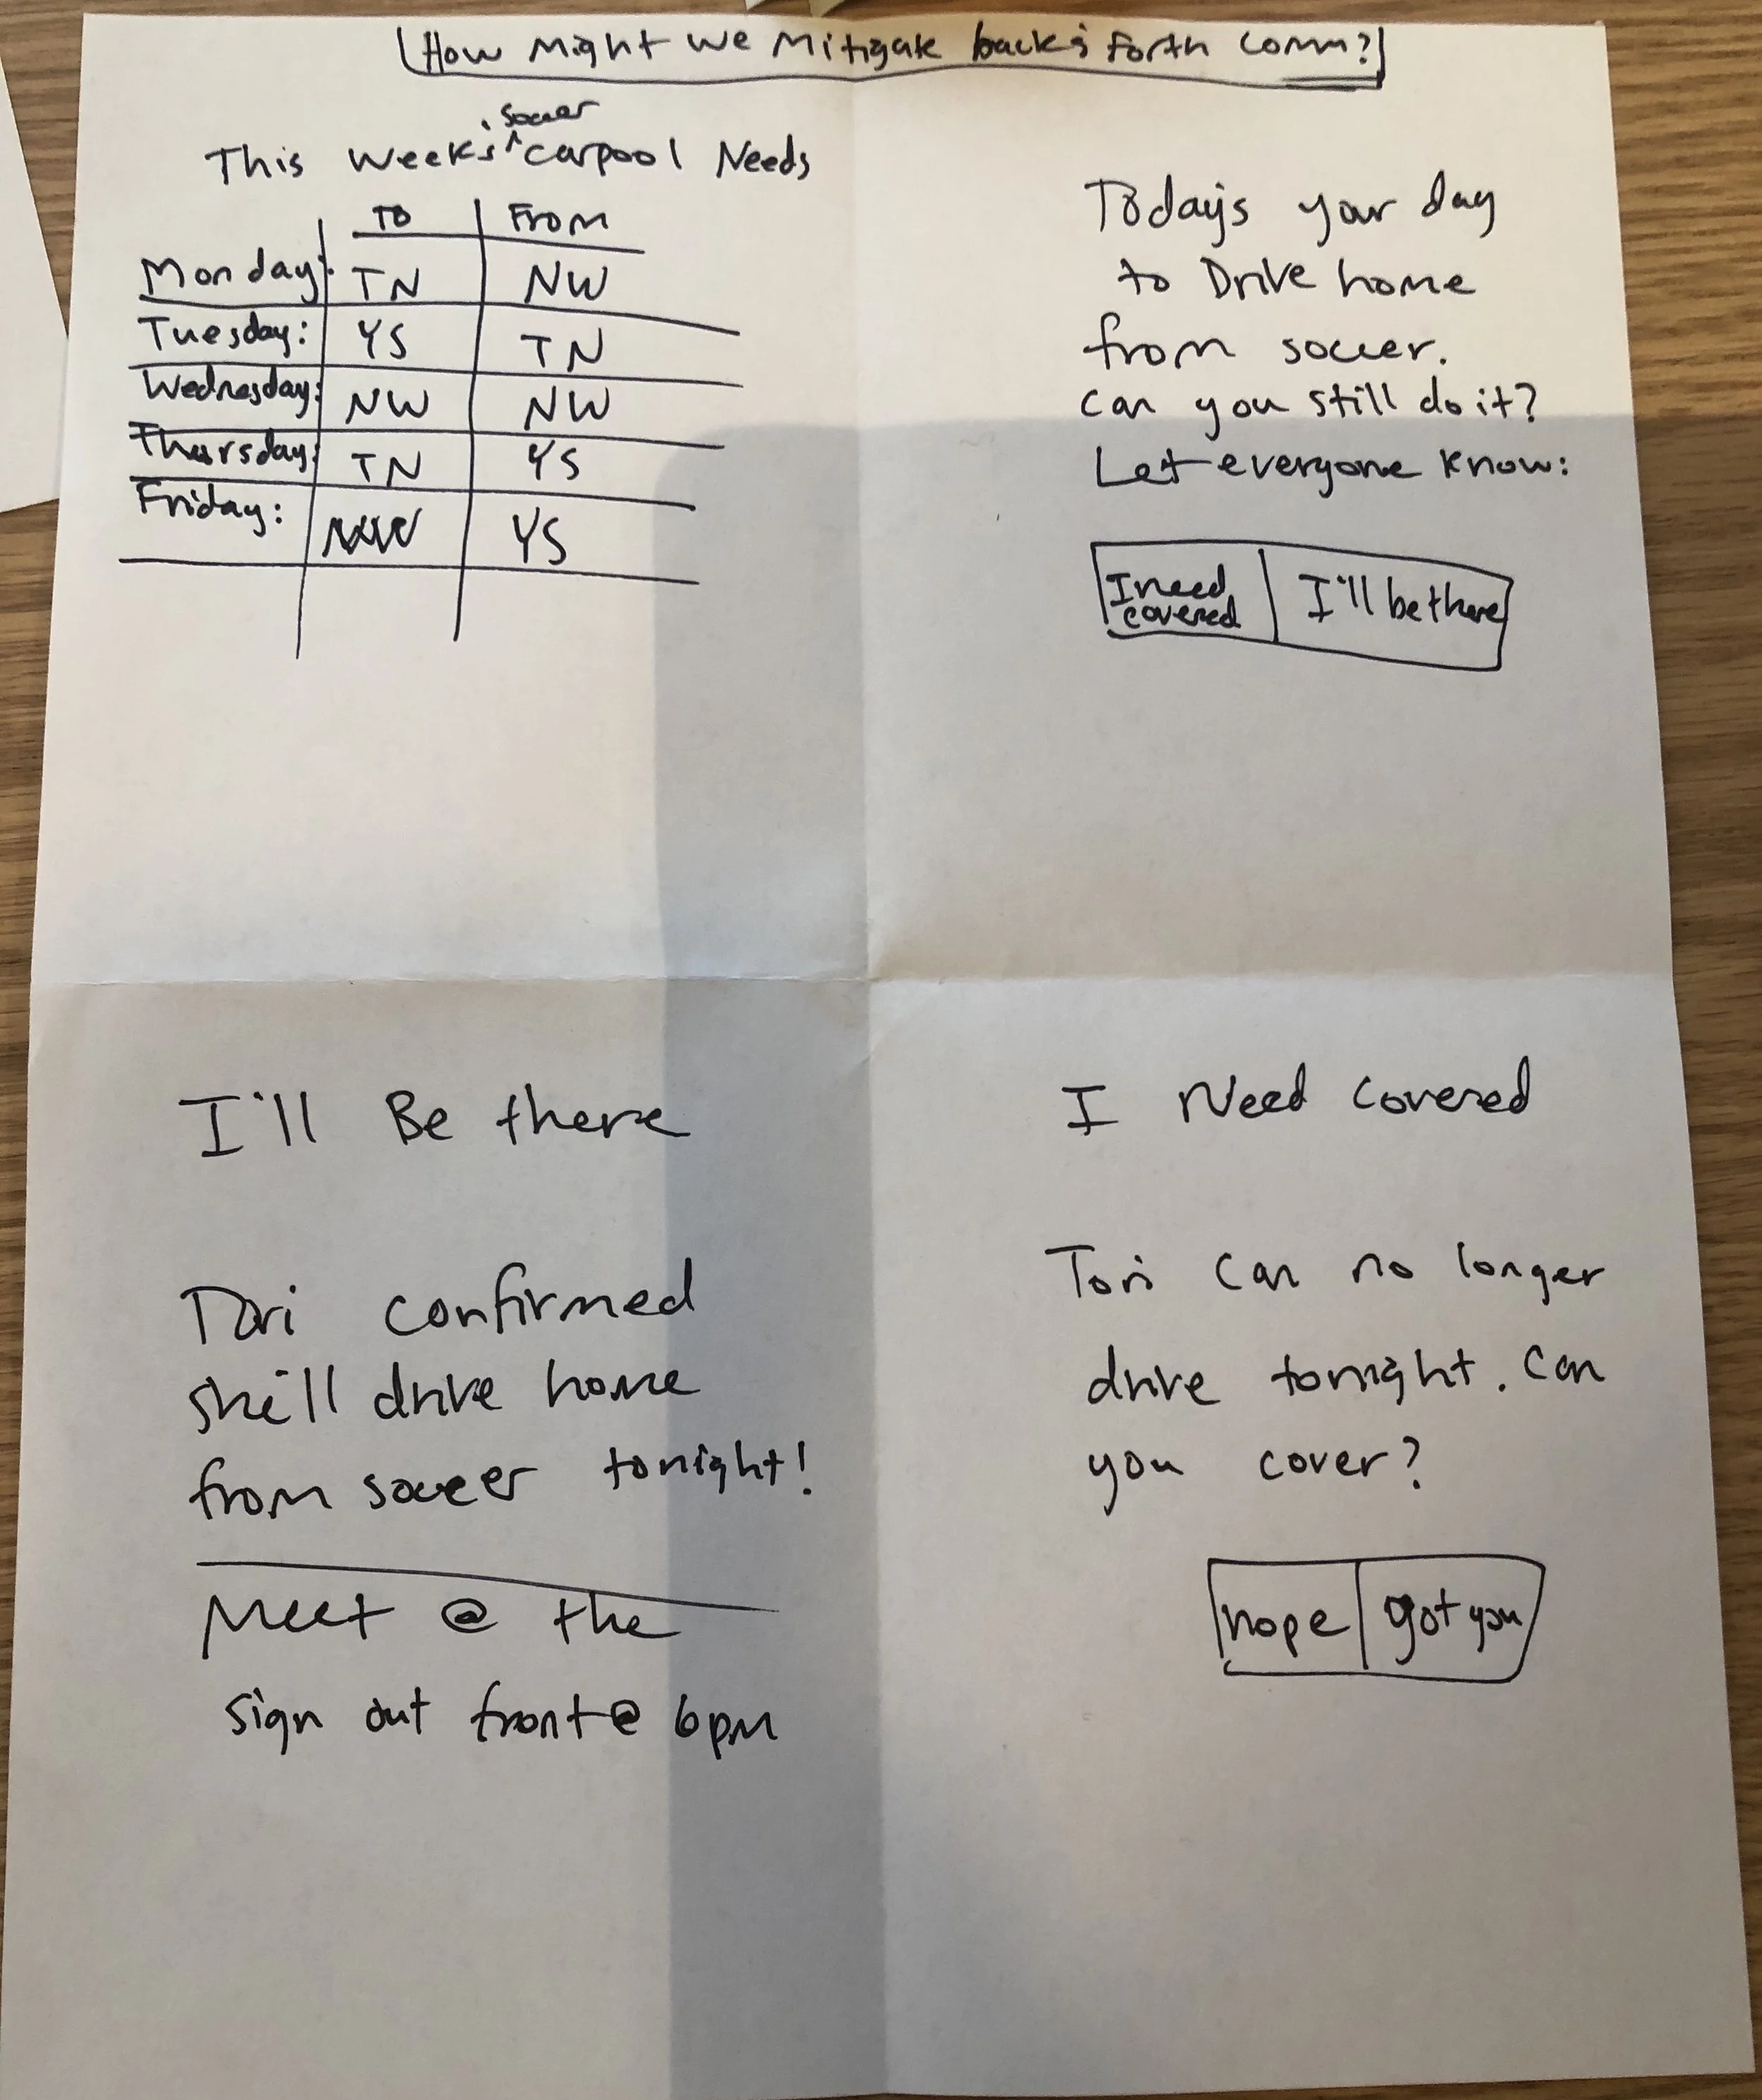 How Might We Mitigate back & Forth Comm?
This Week's soccer carpool Needs
TO From
Monday: TN NW
Tuesday: YS TN
Wednesday: NW NW
Thursday: TN YS
Friday: NW YS
Today's your day
to Drive home
from soccer.
can you still do it?
Let everyone know:
I need covered
I'll be there
I'll Be there
Tori confirmed
she'll drive home
from soccer tonight!
Meet @ the
sign out front @ 6pm
I Need covered
Tori can no longer
drive tonight. Can
you cover?
nope got you